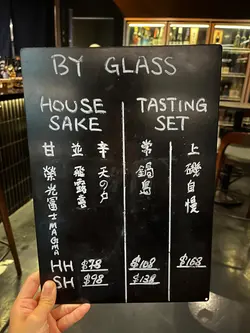 BY GLASS
HOUSE SAKE
TASTING SET
甘 並 辛
榮光冨士 MAGMA
飛露喜
天の戸
常 上
鍋島
磯自慢
HH $78 $108 $168
SH $98 $138